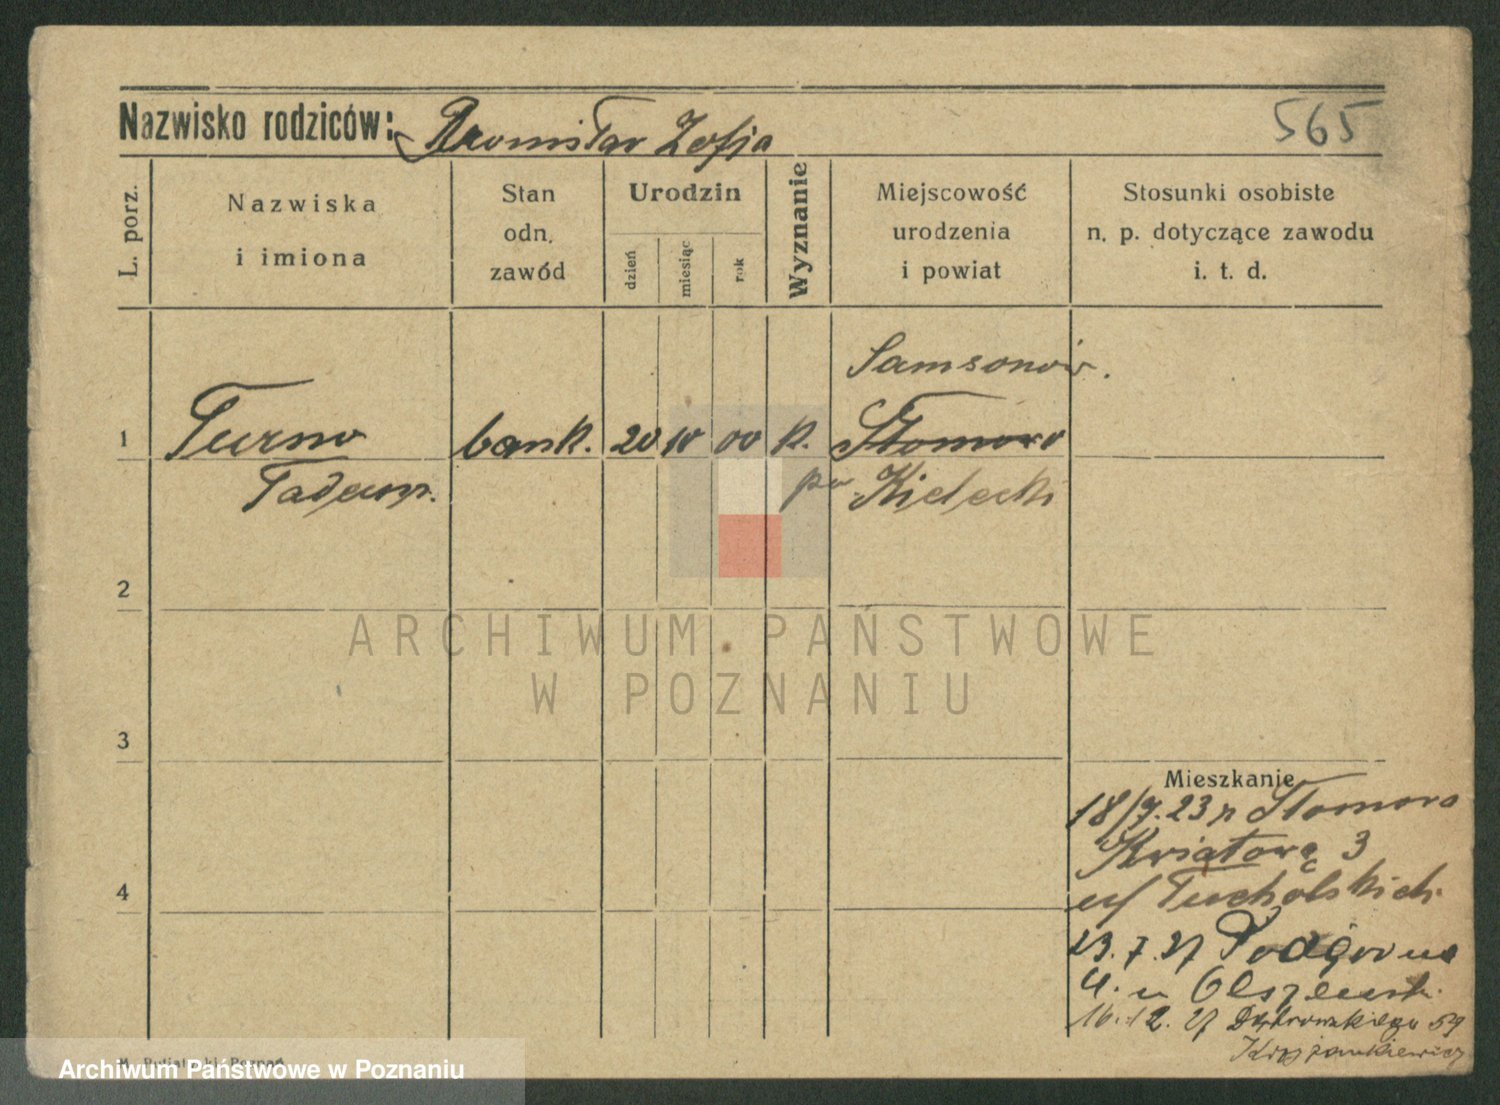 Nazwisko rodziców: Bronisław Zofja
565
L. porz.
Nazwiska
i imiona
Stan
odn.
zawód
Urodzin
dzień
miesiąc
rok
Wyznanie
Miejscowość
urodzenia
i powiat
Stosunki osobiste
n. p. dotyczące zawodu
i. t. d.
Samsonów.
1 Turno bank. 20 10 00 k.
Tadeusz. Kielecki
2
ARCHIWUM PAŃSTWOWE
W POZNANIU
3
Mieszkanie
18/7.23 z
Kwiatowa 3
u/ Tucholskich.
4
23.7.27 Podgórna
4. u
16.12.27 Dąbrowskiego 59
Krzyżankiewicz
Poznań
Archiwum Państwowe w Poznaniu